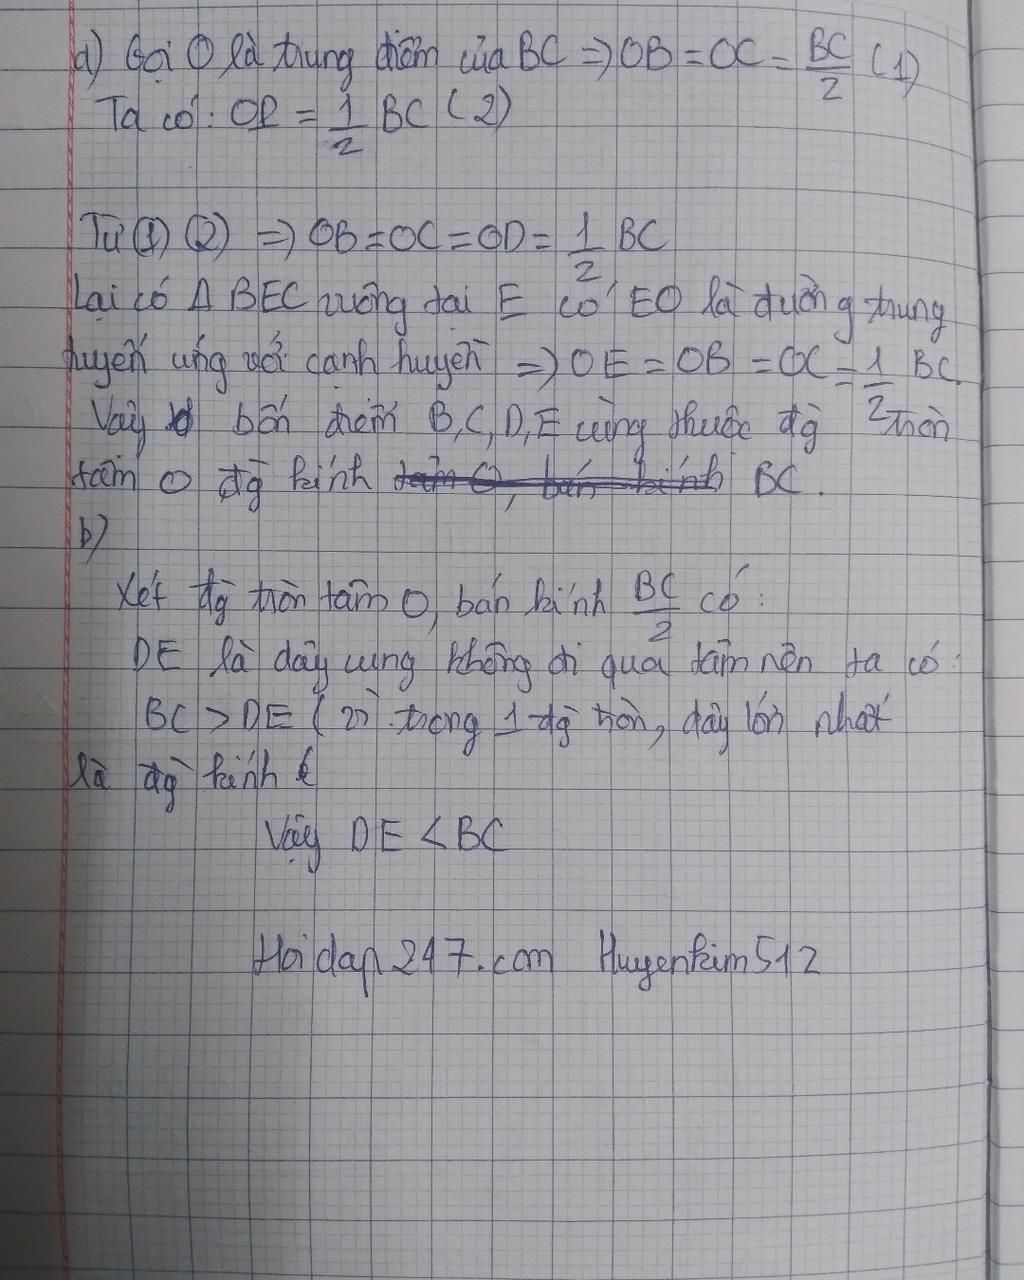 a) Gọi O là trung điểm của BC => OB = OC = BC/2 (1)
Ta có: OD = 1/2 BC (2)
Từ (1) (2) => OB = OC = OD = 1/2 BC
Lại có Δ BEC vuông tại E có EO là đường trung
tuyến ứng với cạnh huyền => OE = OB = OC = 1/2 BC.
Vậy bốn điểm B, C, D, E cùng thuộc đg tròn
tâm O đg kính tâm O, bán kính BC.
b)
Xét đg tròn tâm O, bán kính BC/2 có:
DE là dây cung không đi qua tâm nên ta có:
BC > DE (vì trong 1 đg tròn, dây lớn nhất
là đg kính
Vậy DE < BC
Hoidap247.com Huyenkim512